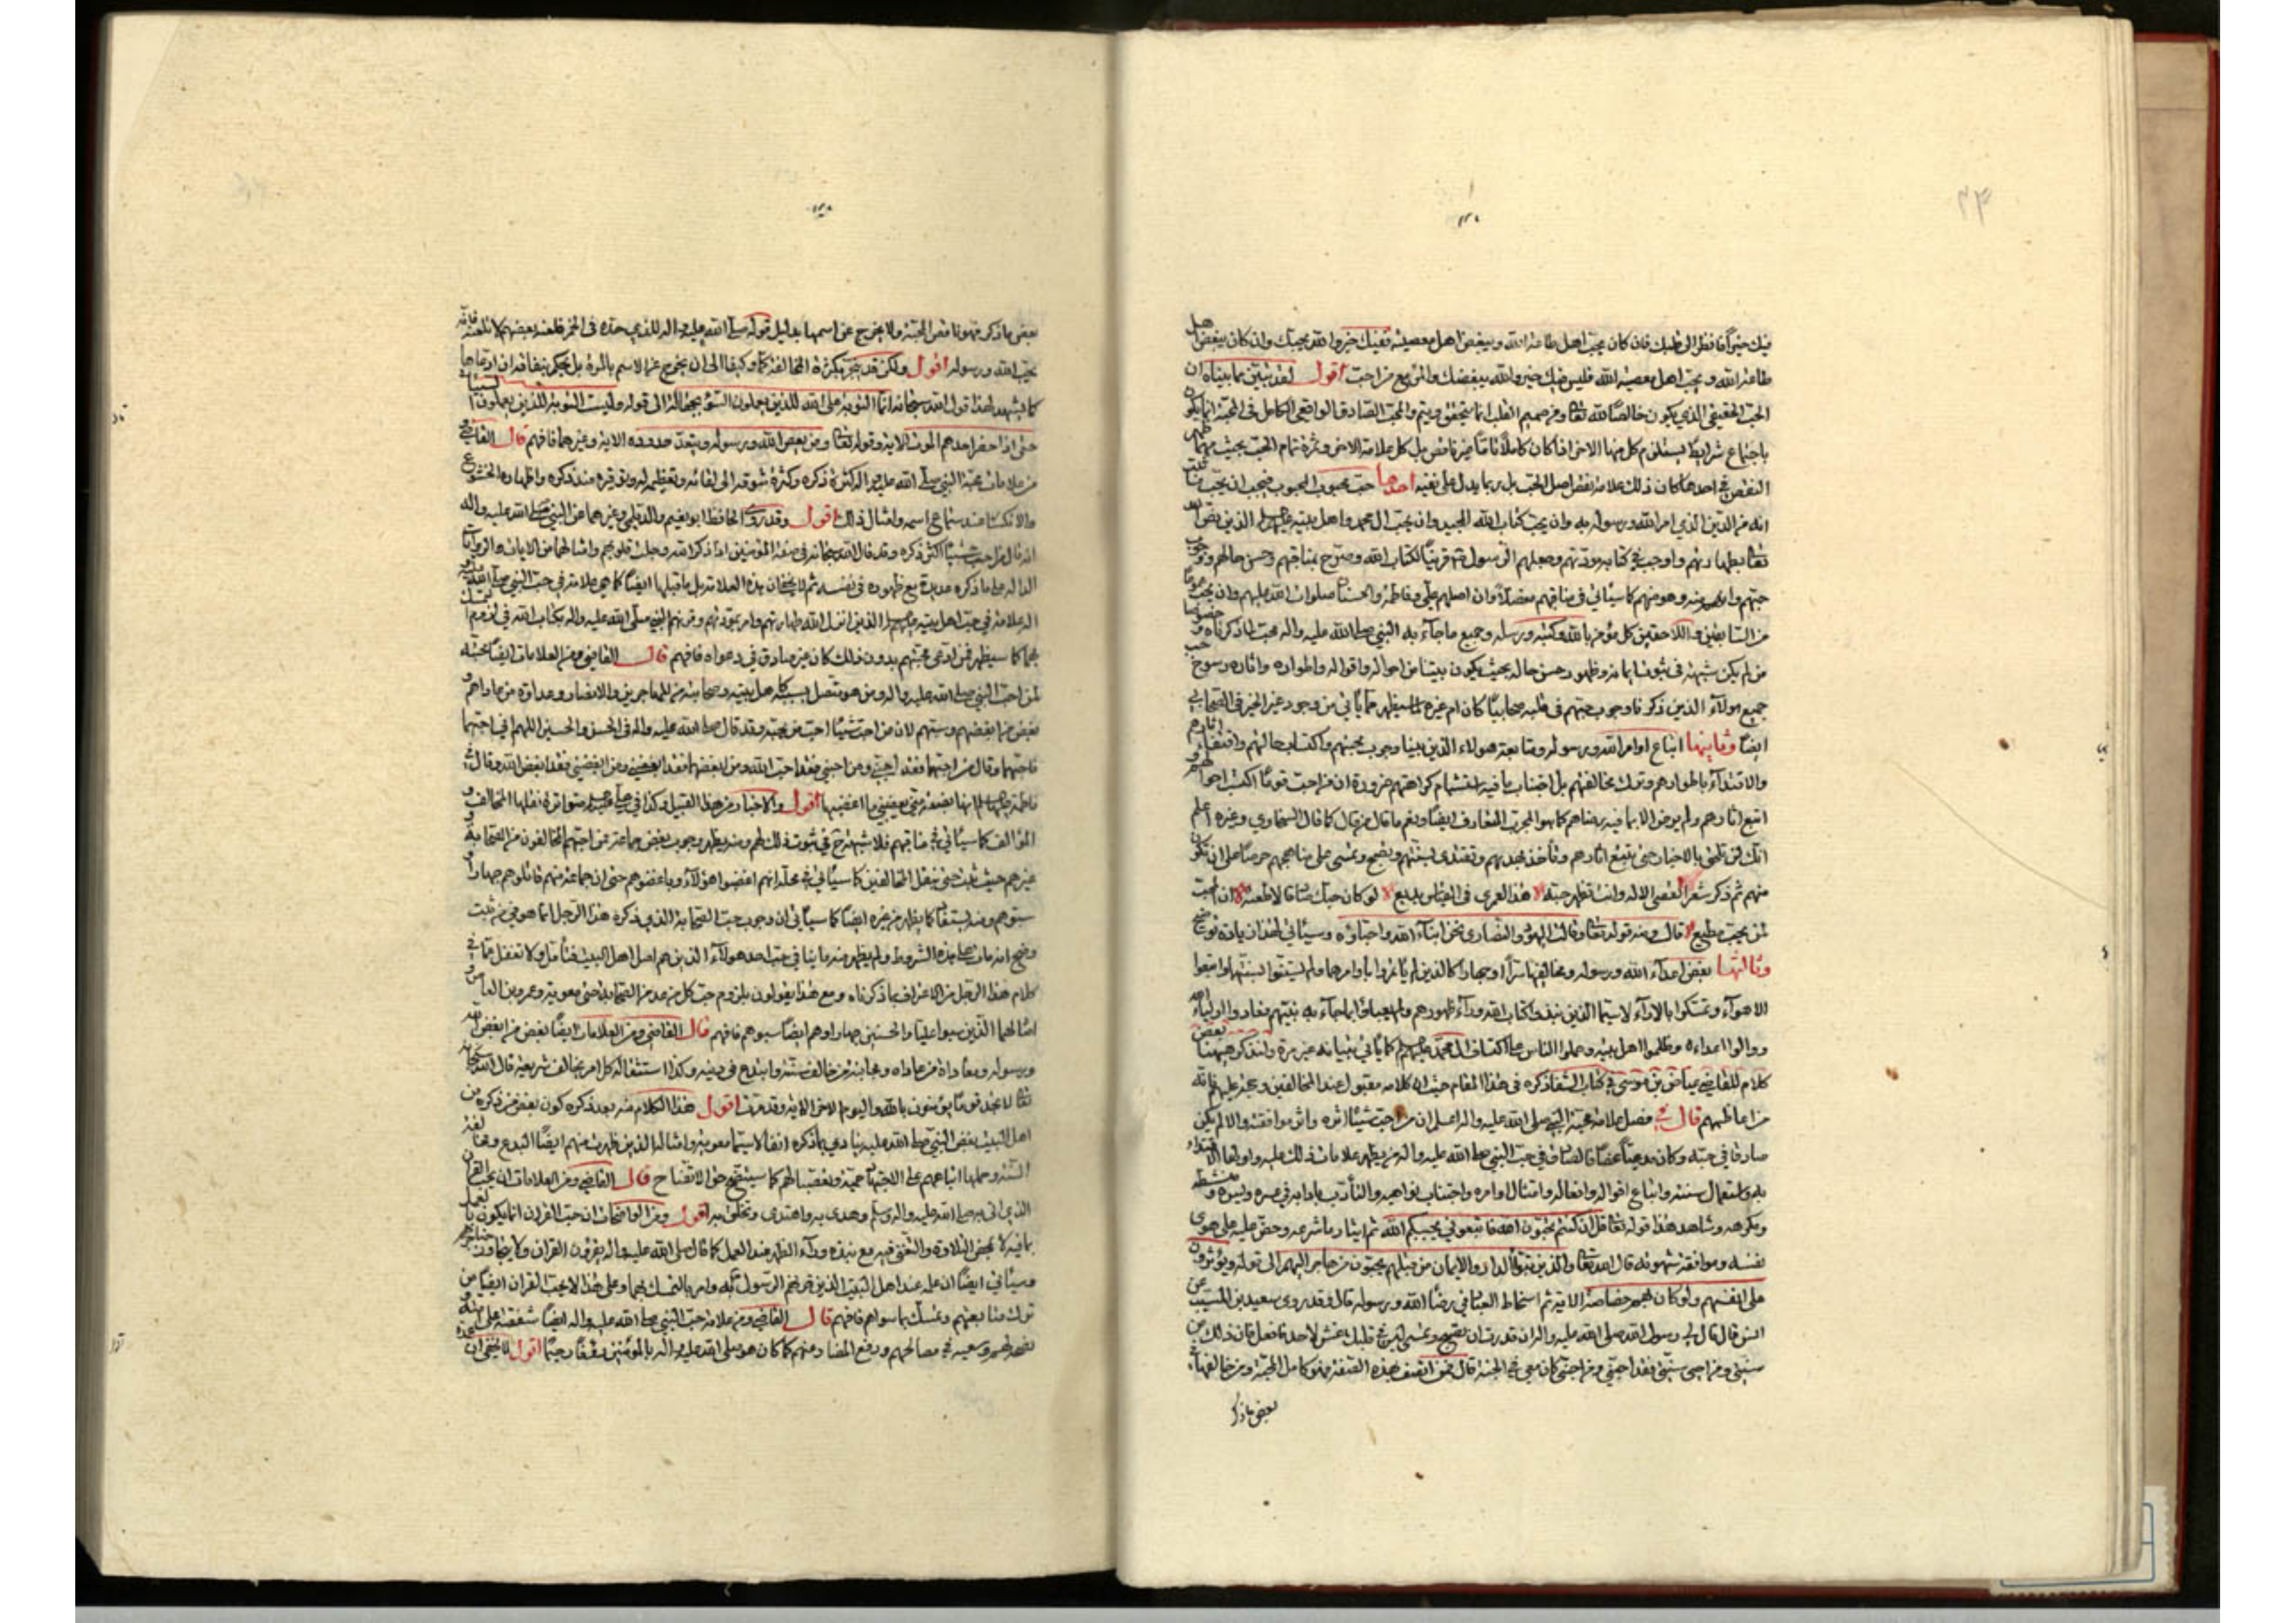 ٢٤
فيك خيرا فانظر الى قلبك فان كان يحب اهل طاعة الله ويبغض اهل معصيته ففيك خير والله يحبك وان كان يبغض اهل
طاعة الله ويحب اهل معصية الله فليس فيك خير والله يبغضك والمرء مع من احب اقول لقد تبين بما بيناه ان
الحب الحقيقي الذي يكون خالصا لله تعا ومن صميم القلب انما يتحقق ويتم والمحب الصادق الواقعي الكامل في المحبة انما يكون
باجتماع شرايط يستلزم كل منها الاخر اذا كان كاملا تاما غير ناقص بل كل علامة الاخر وثمرة تمام الحب بحيث مهما ظهر
النقص في احدها كان ذلك علامة نقص اصل الحب بل ربما يدل على نفيه احدها حب محبوب المحبوب فيجب ان يحب
انه من الذين الذي امر الله ورسوله به وان يحب كتاب الله المجيد وان يحب ال محمد واهل بيته عليهم السلام الذين نص الله
تعا بطهارتهم واوجب في كتابه مودتهم وجعلهم الرسول ص قرينا لكتاب الله وصرح بمناقبهم وحسن حالهم ووجوب
حبهم وانهم منه وهو منهم كما سيأتي في مناقبهم مفصلا وان اصلهم علي وفاطمة والحسنان صلوات الله عليهم وان يحب
من السابقين واللاحقين كل مؤمن بالله وكتبه ورسله وجميع ما جاء به النبي صلى الله عليه واله محب لما ذكرناه
من لم يكن شبهة في ثبوت ايمانه وظهور حسن حاله بحيث يكون بينا من احواله واقواله واطواره واثاره رسوخ حب
جميع هولاء الذين ذكرنا وجوب حبهم في قلبه صحابيا كان ام غيره لما سيظهر مما يأتي من وجود غير الخير في الصحابي
ايضا وثانيها اتباع اوامر الله ورسوله ومتابعة هولاء الذين بينا وجوب محبتهم واكتساب خصالهم واقتفاء اثارهم
والاقتداء باطوارهم وترك مخالفتهم بل اجتناب ما فيه استشمام كراهتهم ضرورة ان من احب قوما
اتبع اثارهم ولم يرض الا بما فيه رضاهم كما هو المجرب المتعارف ايضا ونعم ما قال من قال كما قال السخاوي وغيره اعلم
انك لن تلحق بالاخيار حتى تتبع اثارهم وتأخذ بهديهم وتقتدي بسنتهم وتصبح وتمسي على مناهجهم حرصا على ان تكون
منهم ثم ذكر شعرا تعصي الاله وانت تظهر حبه هذا لعمري في القياس بديع لو كان حبك صادقا لاطعته ان المحب
لمن يحب مطيع قال ومنه قوله تعا وقالت اليهود والنصارى نحن ابناء الله واحباؤه وسيأتي لهذا زيادة توضيح
وثالثها بغض اعداء الله ورسوله ومخالفيها سرا وجهارا كالذين لم يأتمروا باوامرهما ولم يستنوا بسنتهما واتبعوا
الاهواء وتمسكوا بالاراء لاسيما الذين نبذوا كتاب الله وراء ظهورهم ولم يعملوا بما جاء به نبيهم فعادوا اولياء الله
ووالوا اعداءه وظلموا اهل بيته وحملوا الناس على اكتاف ال محمد عليهم السلام كما يأتي بيانه غير مرة ولنذكر هيهنا بعض
كلام للقاضي عياض بن موسى في كتاب الشفا ذكره في هذا المقام حيث ان كلامه مقبول عند المخالفين وعزيز عليهم فانه
من اعاظمهم قال في فصل علامة محبة النبي صلى الله عليه واله اعلم ان من احب شيئا اثره واثر موافقته والا لم يكن
صادقا في حبه وكان مدعيا فالصادق في حب النبي صلى الله عليه واله من يظهر علامات ذلك عليه واولها الاقتداء
به واستعمال سنته واتباع اقواله وافعاله وامتثال اوامره واجتناب نواهيه والتأدب بادابه في عسره ويسره ومنشطه
ومكرهه وشاهد هذا قوله تعا قل ان كنتم تحبون الله فاتبعوني يحببكم الله ثم ايثار ما شرعه وحض عليه على هوى
نفسه وموافقة شهوته قال الله تعا والذين تبوؤا الدار والايمان من قبلهم يحبون من هاجر اليهم الى قوله ويؤثرون
على انفسهم ولو كان بهم خصاصة الاية ثم اسخاط العباد في رضاء الله ورسوله قال وقد روى سعيد بن المسيب عن
انس قال قال لي رسول الله صلى الله عليه واله ان قدرت ان تصبح وتمسي ليس في قلبك غش لاحد فافعل فان ذلك من
سنتي ومن احيى سنتي فقد احبني ومن احبني كان معي في الجنة قال فمن اتصف بهذه الصفة فهو كامل المحبة ومن خالفها في
بعض ما ذكر
بعض ما ذكر فهو ناقص المحبة ولا يخرج عن اسمها بدليل قوله صلى الله عليه واله للذي حده في الخمر فلعنه بعضهم لا تلعنه فانه
يحب الله ورسوله اقول ولكن قد ينجر بكثرة المخالفة كما وكيفا الى ان يخرج عن الاسم بالمرة بل يحكم بنفاقه ان ادعاها
كما يشهد لهذا قول الله سبحانه انما التوبة على الله للذين يعملون السوء بجهالة الى قوله وليست التوبة للذين يعملون السيئات
حتى اذا حضر احدهم الموت الاية وقوله تعا ومن يعص الله ورسوله ويتعد حدوده الاية وغيرهما فافهم قال القاضي
من علامات محبة النبي صلى الله عليه واله كثرة ذكره وكثرة شوقه الى لقائه وتعظيمه له وتوقيره عند ذكره واظهاره الخشوع
والانكسار عند سماع اسمه وامثال ذلك اقول وقد روى الحافظ ابو نعيم والديلمي وغيرهما عن النبي صلى الله عليه واله
انه قال من احب شيئا اكثر ذكره وقد قال الله سبحانه في صفة المؤمنين اذا ذكر الله وجلت قلوبهم وامثالهما من الايات والروايات
الدالة على ما ذكره عديدة مع ظهوره في نفسه ثم لا يخفى ان هذه العلامة بل ما قبلها ايضا كما هي علامة في حب النبي صلى الله عليه واله
علامة في حب اهل بيته عليهم السلام الذين انزل الله طهارتهم وامر بمودتهم وقرنهم النبي صلى الله عليه واله بكتاب الله في لزوم التمسك
بهما كما سيظهر فمن ادعى محبتهم بدون ذلك كان غير صادق في دعواه فافهم قال القاضي ومن العلامات ايضا محبته
لمن احب النبي صلى الله عليه واله ومن هو متصل بسببه اهل بيته وصحابته من المهاجرين والانصار وعداوة من عاداهم و
بغض من ابغضهم وسبهم لان من احب شيئا احب من يحبه وقد قال صلى الله عليه واله في الحسن والحسين اللهم اني احبهما
فاحبهما وقال من احبهما فقد احبني ومن احبني فقد احب الله ومن ابغضهما فقد ابغضني ومن ابغضني فقد ابغض الله وقال في
فاطمة عليها السلام انها بضعة مني يغضبني ما اغضبها اقول والاخبار من هذا القبيل وكذا في علي متواترة نقلها المخالف و
المؤالف كما سيأتي في مناقبهم فلا شبهة ح في ثبوت ذلك لهم ومنه يظهر وجوب بغض جماعة ممن احبهم المخالفون من الصحابة و
غيرهم حيث ثبت حتى بنقل المخالفين كما سيأتي في محله انهم ابغضوا هؤلاء وباغضوهم حتى ان جماعة منهم قاتلوهم جهارا و
سبوهم ومنه يستفاد كما يظهر من غيره ايضا كما سيأتي ان وجوب حب الصحابة الذي ذكره هذا الرجل انما هو في من ثبت
وصح انه مات على هذه الشروط ولم يظهر منه ما ينافي حب احد هولاء الذين هم اصل اهل البيت فتأمل ولا تغفل عما في
كلام هذا الرجل من الاعتراف بما ذكرناه ومع هذا يقولون بلزوم حب كل من عد من الصحابة حتى معوية وعمرو بن العاص و
امثالهما الذين سبوا عليا والحسنين جهارا وهم ايضا سبوهم فافهم قال القاضي ومن العلامات ايضا بغض من ابغض الله
ورسوله ومعاداة من عاداه ومجانبة من خالف سنته وابتدع في دينه وكذا استثقاله كل امر يخالف شريعته قال الله سبحانه
تعا لا تجد قوما يؤمنون بالله واليوم الاخر الاية وقد مرت اقول هذا الكلام منه بعد ذكره كون بغض من ذكره من
اهل البيت بغض النبي صلى الله عليه ينادي بما ذكره انفا لاسيما معوية وامثاله الذين ظهرت منهم ايضا البدع ومخالفة
السنة وحملها اتباعهم على الاجتهاد حمية وتعصبا لهم كما سيتضح حق الاتضاح قال القاضي ومن العلامات ان يحب القران
الذي اتى به صلى الله عليه واله وسلم وهدى به واهتدى وتخلق به اقول ومن الواضحات ان حب القران انما يكون بالعمل
بما فيه لا بمحض التلاوة والتغني فيه مع نبذه وراء الظهر عند العمل كما قال صلى الله عليه واله يقرؤن القران ولا يتجاوز حناجرهم
وسيأتي ايضا ان علمه عند اهل البيت الذين قرنهم الرسول ص به وامر بالتمسك بهما وعلى هذا لا يحب القران ايضا من
ترك متابعتهم وتمسك بما سواهم فافهم قال القاضي ومن علامة حب النبي صلى الله عليه واله ايضا شفقته على امته و
نصحه لهم وسعيه في مصالحهم ورفع المضار عنهم كما كان هو صلى الله عليه واله بالمؤمنين رؤفا رحيما اقول لا يخفى ان